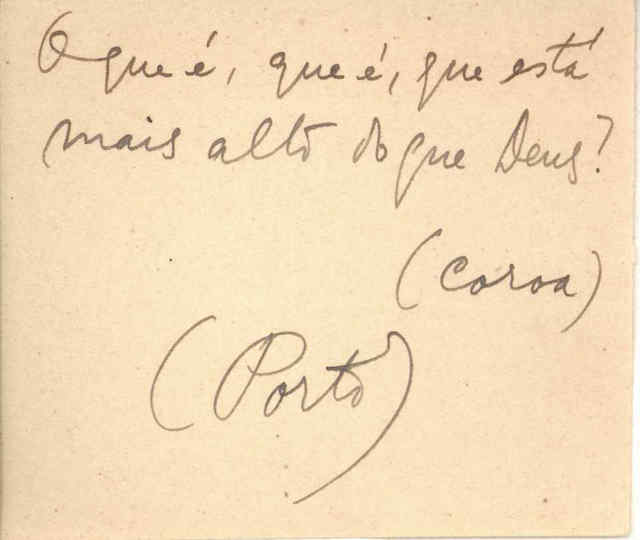 O que é, que é, que está
mais alto do que Deus?
(coroa)
(Porto)